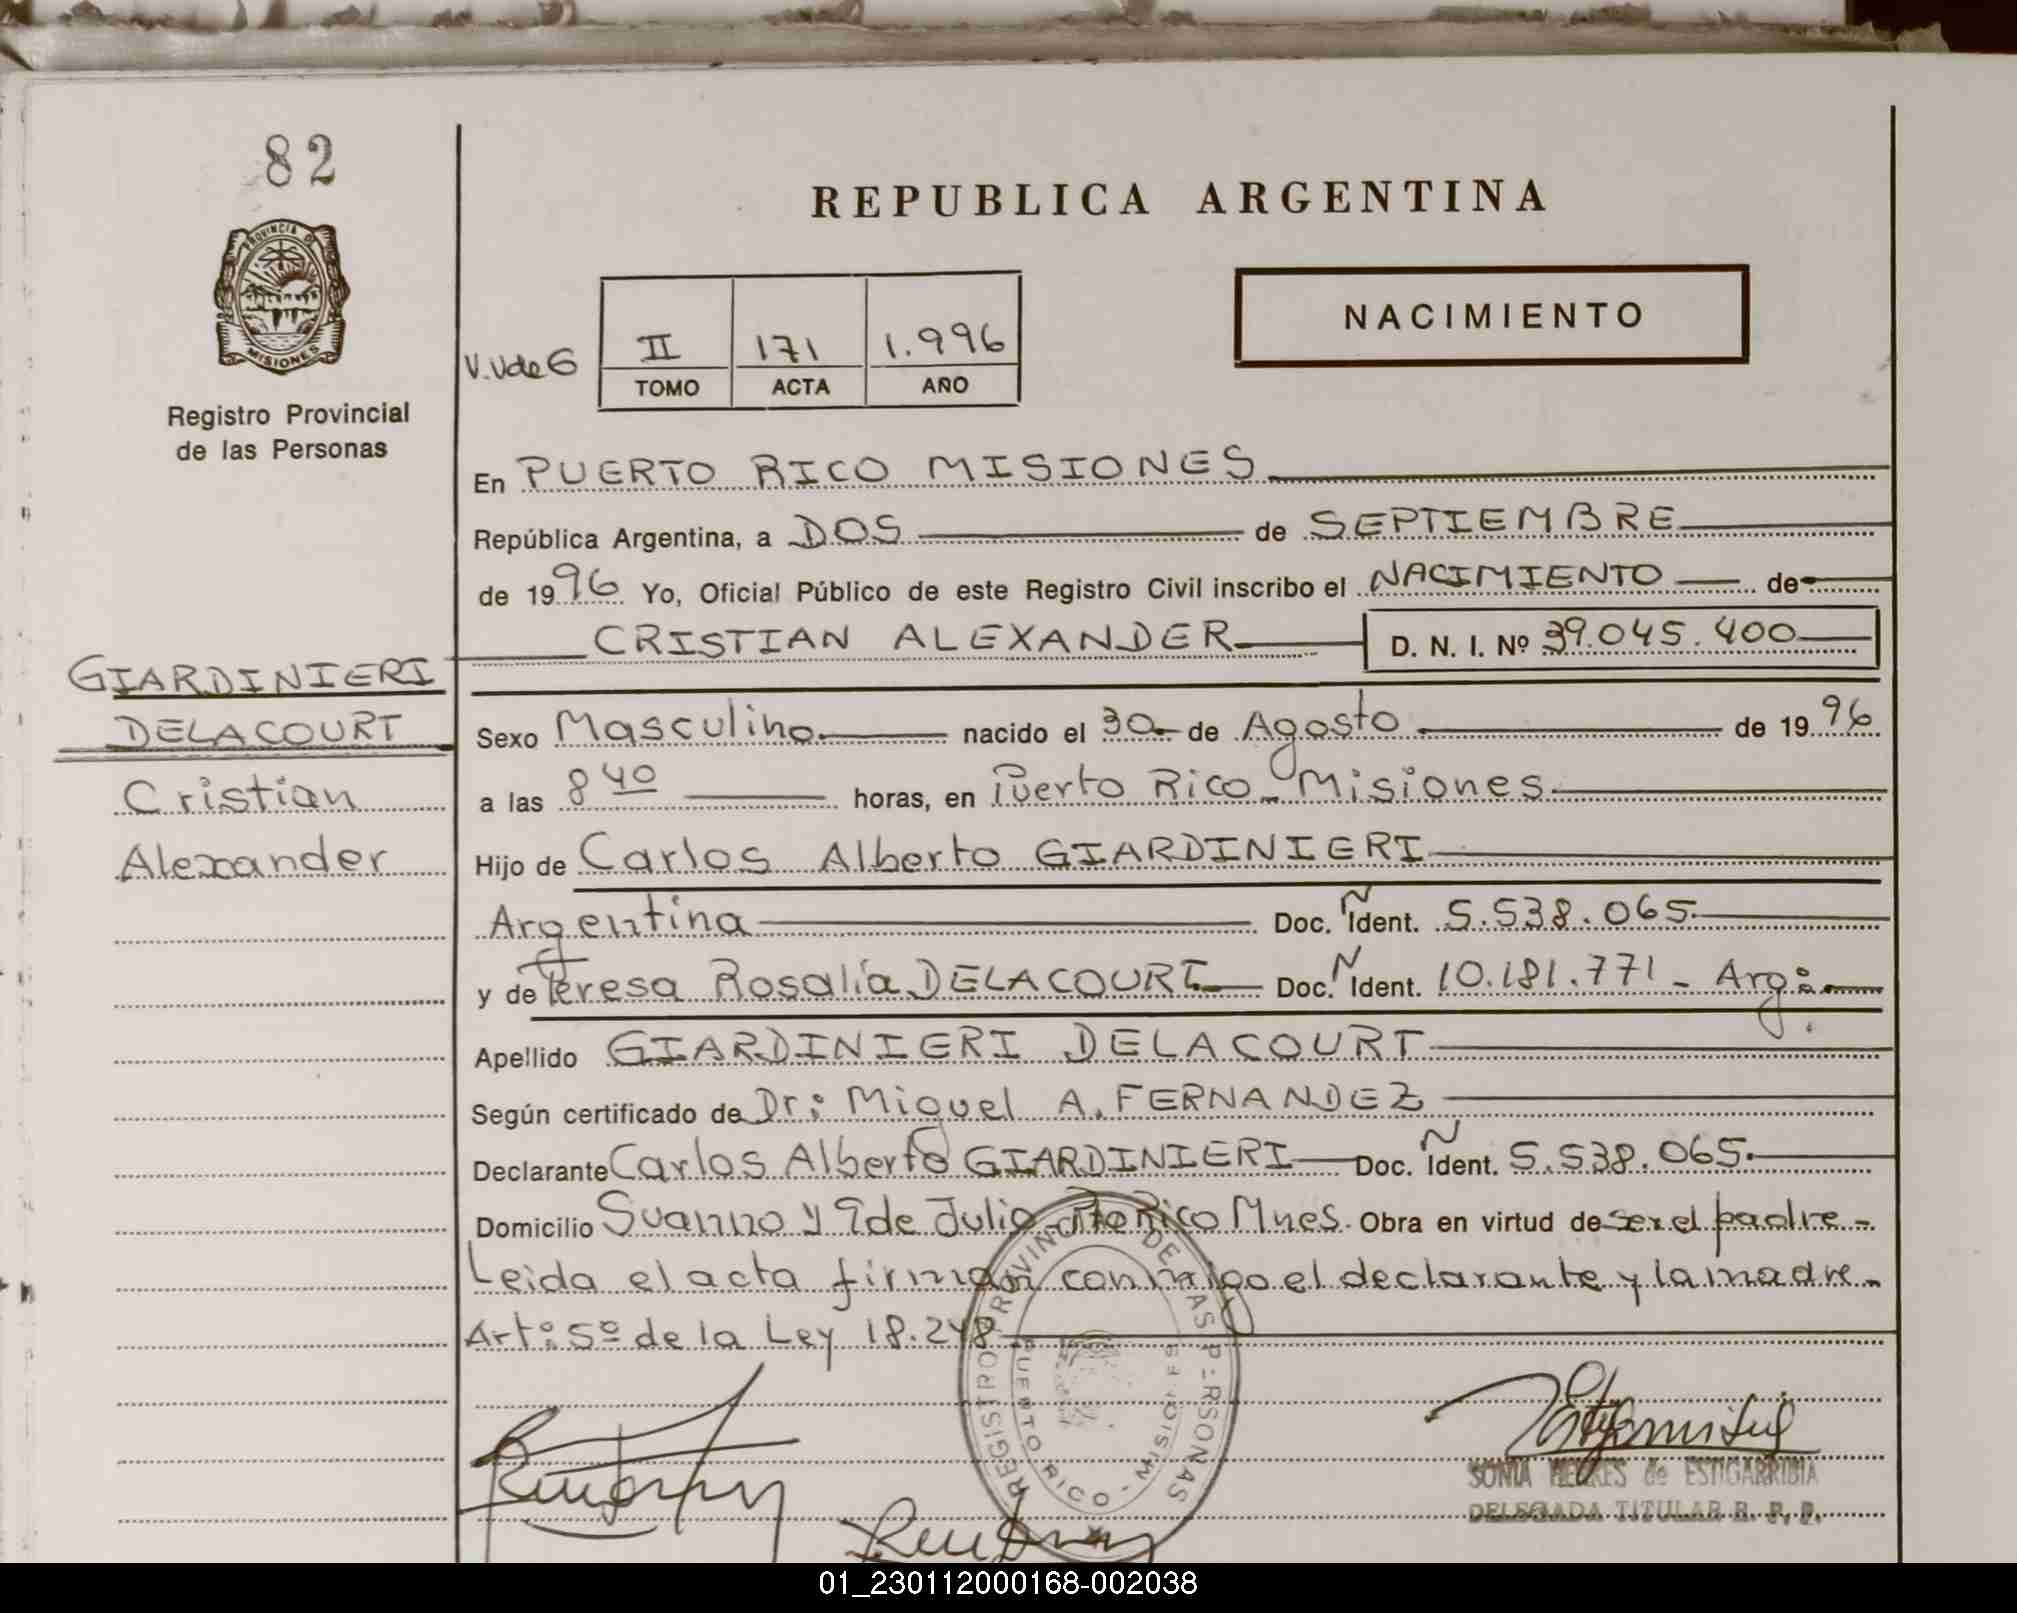 82
PROVINCIA DE
MISIONES
Registro Provincial
de las Personas
GIARDINIERI
DELACOURT
Cristian
Alexander
REPUBLICA ARGENTINA
NACIMIENTO
V.Vde G
II 171 1.996
TOMO ACTA AÑO
En PUERTO RICO MISIONES
República Argentina, a DOS de SEPTIEMBRE
de 1996 Yo, Oficial Público de este Registro Civil inscribo el NACIMIENTO de
CRISTIAN ALEXANDER D. N. I. Nº 39.045.400
Sexo Masculino nacido el 30 de Agosto de 1996
a las 8 40 horas, en Puerto Rico - Misiones
Hijo de Carlos Alberto GIARDINIERI
Argentina Doc. Ñ Ident. 5.538.065
y de Teresa Rosalía DELACOURT Doc. N Ident. 10.181.771 - Arg:
Apellido GIARDINIERI DELACOURT
Según certificado de Dr: Miguel A. FERNANDEZ
Declarante Carlos Alberto GIARDINIERI Doc. Ñ Ident. 5.538.065.
Domicilio Suanno y 9 de Julio - Pto Rico Mnes. Obra en virtud de ser el padre -
Leida el acta firman conmigo el declarante y la madre -
Art: 5º de la Ley 18.248
REGISTRO PROVINCIAL DE LAS PERSONAS
PUERTO RICO - MISIONES
SONIA de ESTIGARRIBIA
DELEGADA TITULAR R. P. P.
01_230112000168-002038